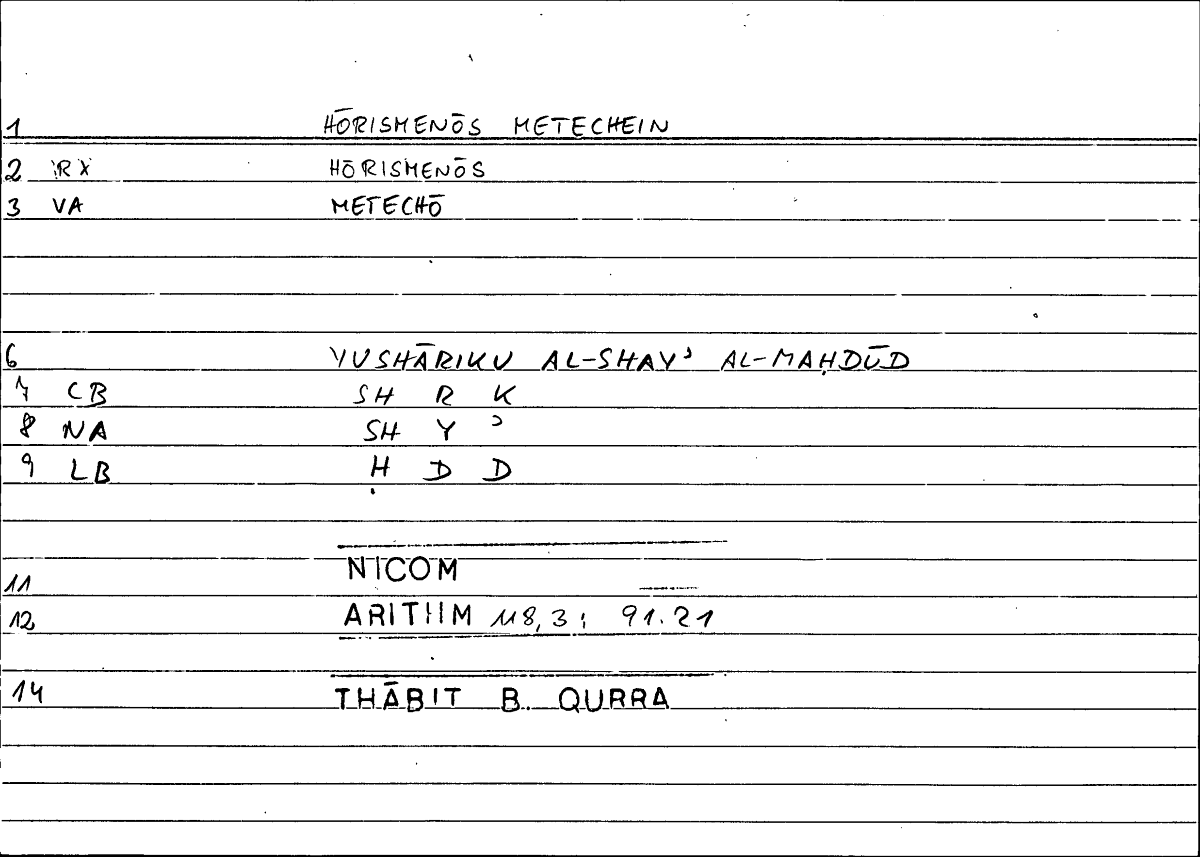 1 HŌRISMENŌS METECHEIN
2 RX HŌRISMENŌS
3 VA METECHŌ
6 YUSHĀRIKU AL-SHAYʾ AL-MAḤDŪD
7 CB SH R K
8 NA SH Y ʾ
9 LB Ḥ D D
11 NICOM
12 ARITHM 118,3; 91.21
14 THĀBIT B. QURRA